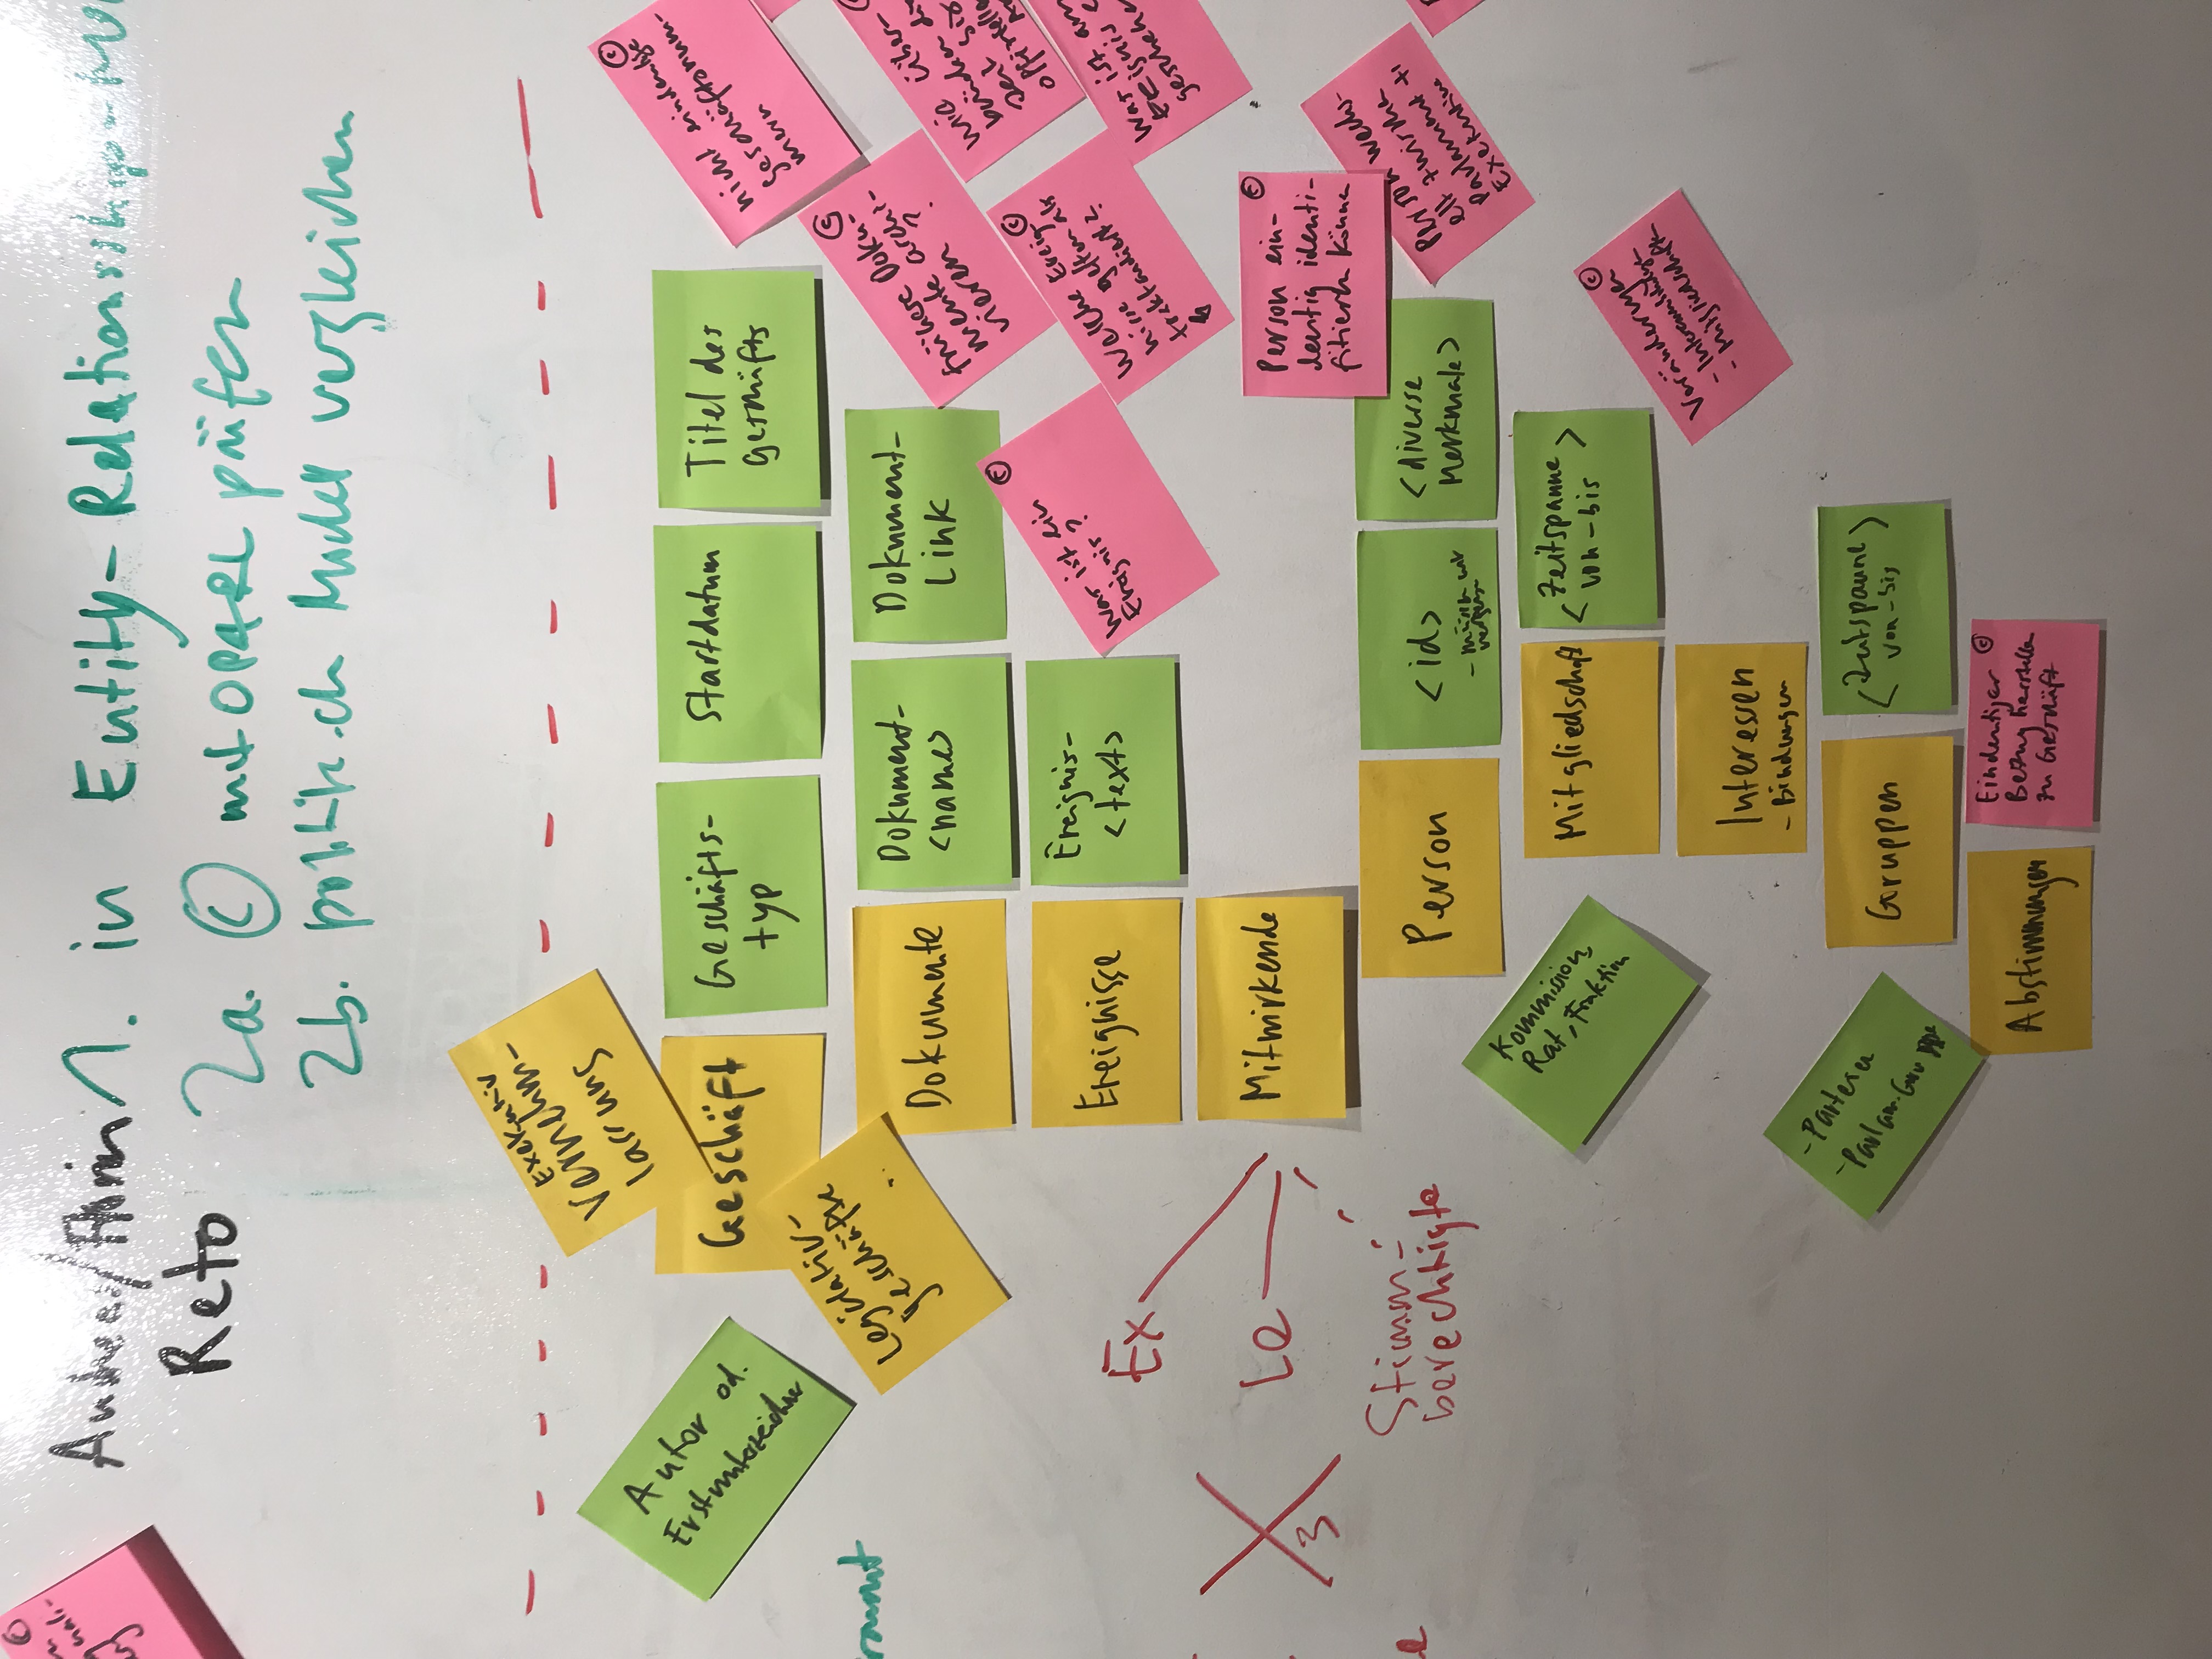 Reto
1. in Entity-Relationsship-
2a. © mit OPARL prüfen
2b. politik.ch Modell vergleichen
Exekutiv
Vernehm-
lassung
Autor od.
Erstunterzeichner
Geschäft
Geschäfts-
typ
Startdatum
Titel des
geschäfts
©
nicht eindeutige
geschäftsnum-
mern
Legislativ-
geschäfte
..
Dokumente
Dokument-
<name>
Dokument-
Link
©
frühere Doku-
mente archi-
vieren?
wie über-
Zeit bis
Ereignisse
Ereignis-
<text>
©
Was ist ein
Ereignis?
©
Welche Ereig-
nisse gelten als
traktandiert?
Was ist am
Ereignis
geschehen
Ex
Le
Stimm-
berechtigte
3
Mitwirkende
©
Person ein-
deutig identi-
fizieren können
Person
<id>
<diverse
Merkmale>
Person wechs-
elt zwischen
Parlament +
Exekutive
Kommission,
Rat, Fraktion
Mitgliedschaft
<Zeitspanne
von-bis>
©
Veränderungen
- Interessenbindungen
- Mitgliedschaften
Interessen
- Bindungen
- Parteien
- Parlam. Gruppe
Gruppen
<Zeitspanne>
von-bis
Abstimmungen
©
Eindeutiger
Bezug herstellen
zu Geschäft